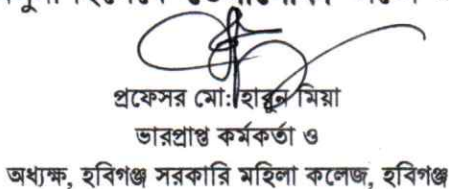 প্রফেসর মো: হারুন মিয়া
ভারপ্রাপ্ত কর্মকর্তা ও
অধ্যক্ষ, হবিগঞ্জ সরকারি মহিলা কলেজ, হবিগঞ্জ